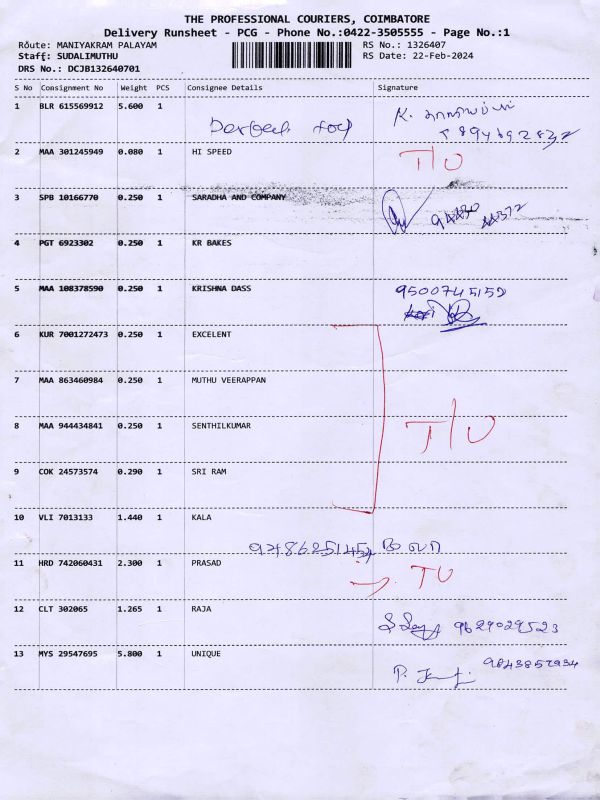 THE PROFESSIONAL COURIERS, COIMBATORE
Delivery Runsheet - PCG - Phone No.:0422-3505555 - Page No.:1
Route: MANIYAKRAM PALAYAM
RS No.: 1326407
Staff: SUDALIMUTHU
RS Date: 22-Feb-2024
DRS No.: DCJB132640701
S No Consignment No Weight PCS Consignee Details Signature
1 BLR 615569912 5.600 1
K.
2 MAA 301245949 0.080 1 HI SPEED T/U
3 SPB 10166770 0.250 1 SARADHA AND COMPANY
4 PGT 6923302 0.250 1 KR BAKES
5 MAA 108378590 0.250 1 KRISHNA DASS
6 KUR 7001272473 0.250 1 EXCELENT
7 MAA 863460984 0.250 1 MUTHU VEERAPPAN
8 MAA 944434841 0.250 1 SENTHILKUMAR T/U
9 COK 24573574 0.290 1 SRI RAM
10 VLI 7013133 1.440 1 KALA
11 HRD 742060431 2.300 1 PRASAD TU
12 CLT 302065 1.265 1 RAJA 9629029523
13 MYS 29547695 5.800 1 UNIQUE